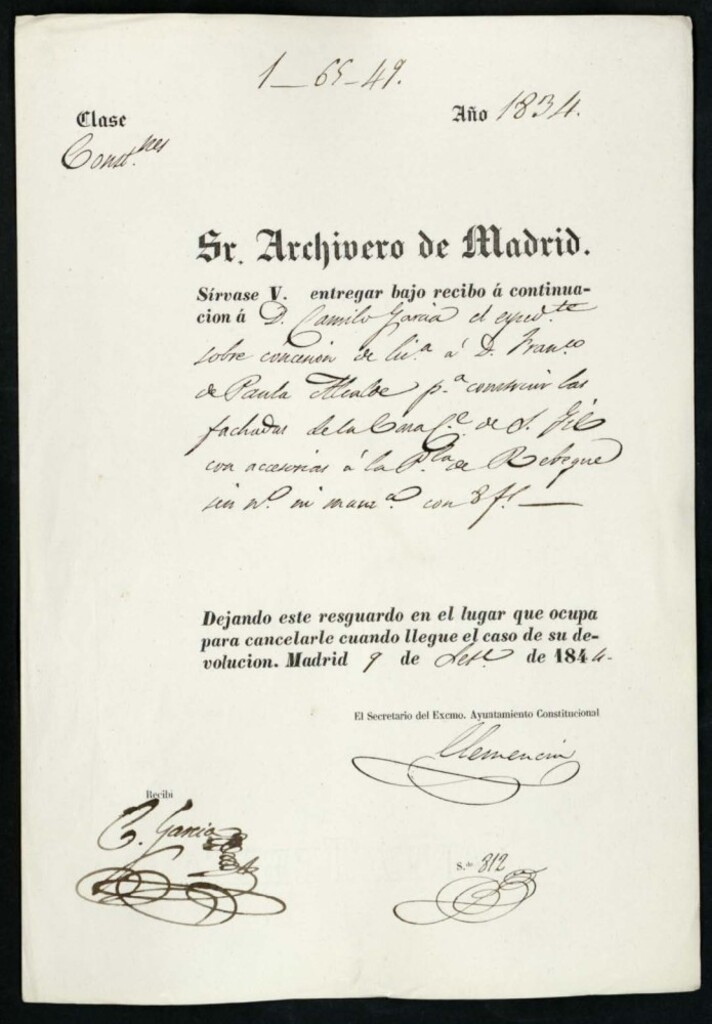 1 — 65 — 49.
Clase
Año 1834.
Const.nes
Sr. Archivero de Madrid.
Sírvase V. entregar bajo recibo á continua-
cion á D. Camilo Garcia el exped.te
sobre concesion de lic.a á D. Fran.co
de Paula Alcalde p.a construir las
fachadas de la Casa C.e de S. Gil
con accesorias á la Pl.a de Rebeque
sin n.o ni manz.a con 8 f.s —
Dejando este resguardo en el lugar que ocupa
para cancelarle cuando llegue el caso de su de-
volucion. Madrid 9 de Set.e de 1844.
El Secretario del Excmo. Ayuntamiento Constitucional
Clemencin
Recibi
C. Garcia
S.do 812